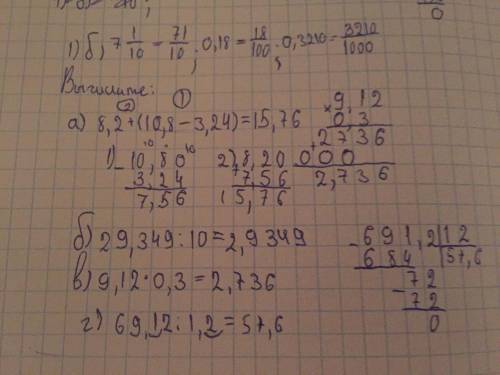 1) б) 7 1/10 = 71/10 ; 0,18 = 18/100 ; 0,3210 = 3210/1000
Вычислите:
② ①
а) 8,2+(10,8-3,24)=15,76
1) 10,80 - 3,24 = 7,56
2) 8,20 + 7,56 = 15,76
9,12 × 0,3
2736
+ 000
2,736
б) 29,349:10=2,9349
в) 9,12·0,3=2,736
г) 69,12:1,2=57,6
691,2 | 12
684 | 57,6
72
72
0